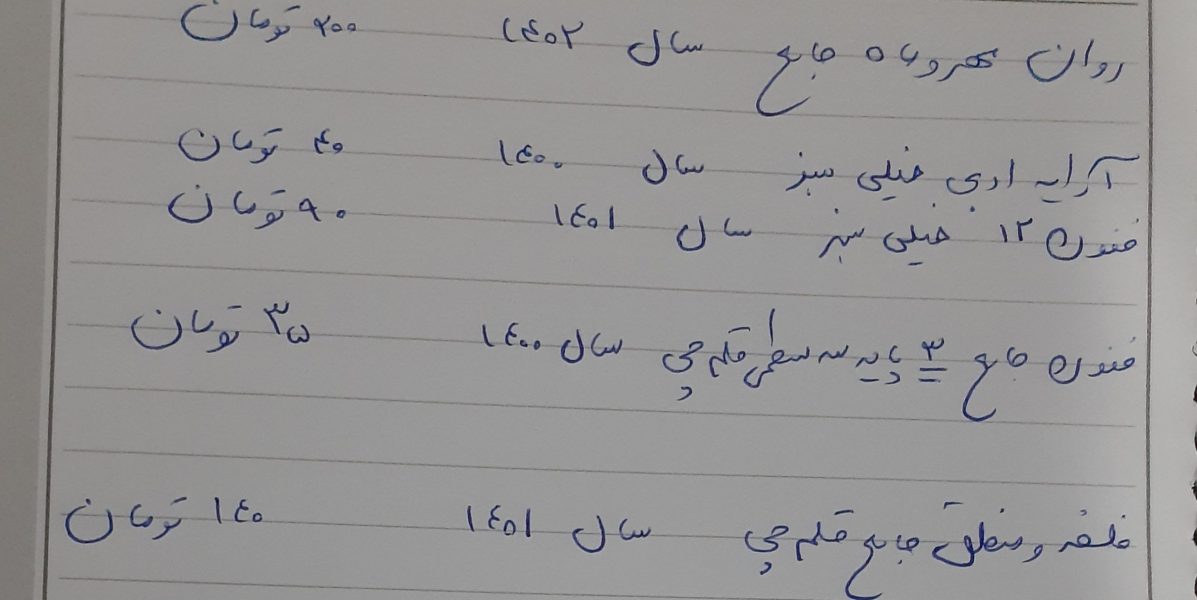 روان مهروماه جامع سال ۱۴۰۲ ۲۰۰ تومان
آرایه ادبی خیلی سبز سال ۱۴۰۰ ۴۰ تومان
فنون ۱۲ خیلی سبز سال ۱۴۰۱ ۹۰ تومان
فنون جامع ۳ پایه سه سطحی قلم چی سال ۱۴۰۰ ۳۵ تومان
فلسفه و منطق جامع قلم چی سال ۱۴۰۱ ۱۴۰ تومان